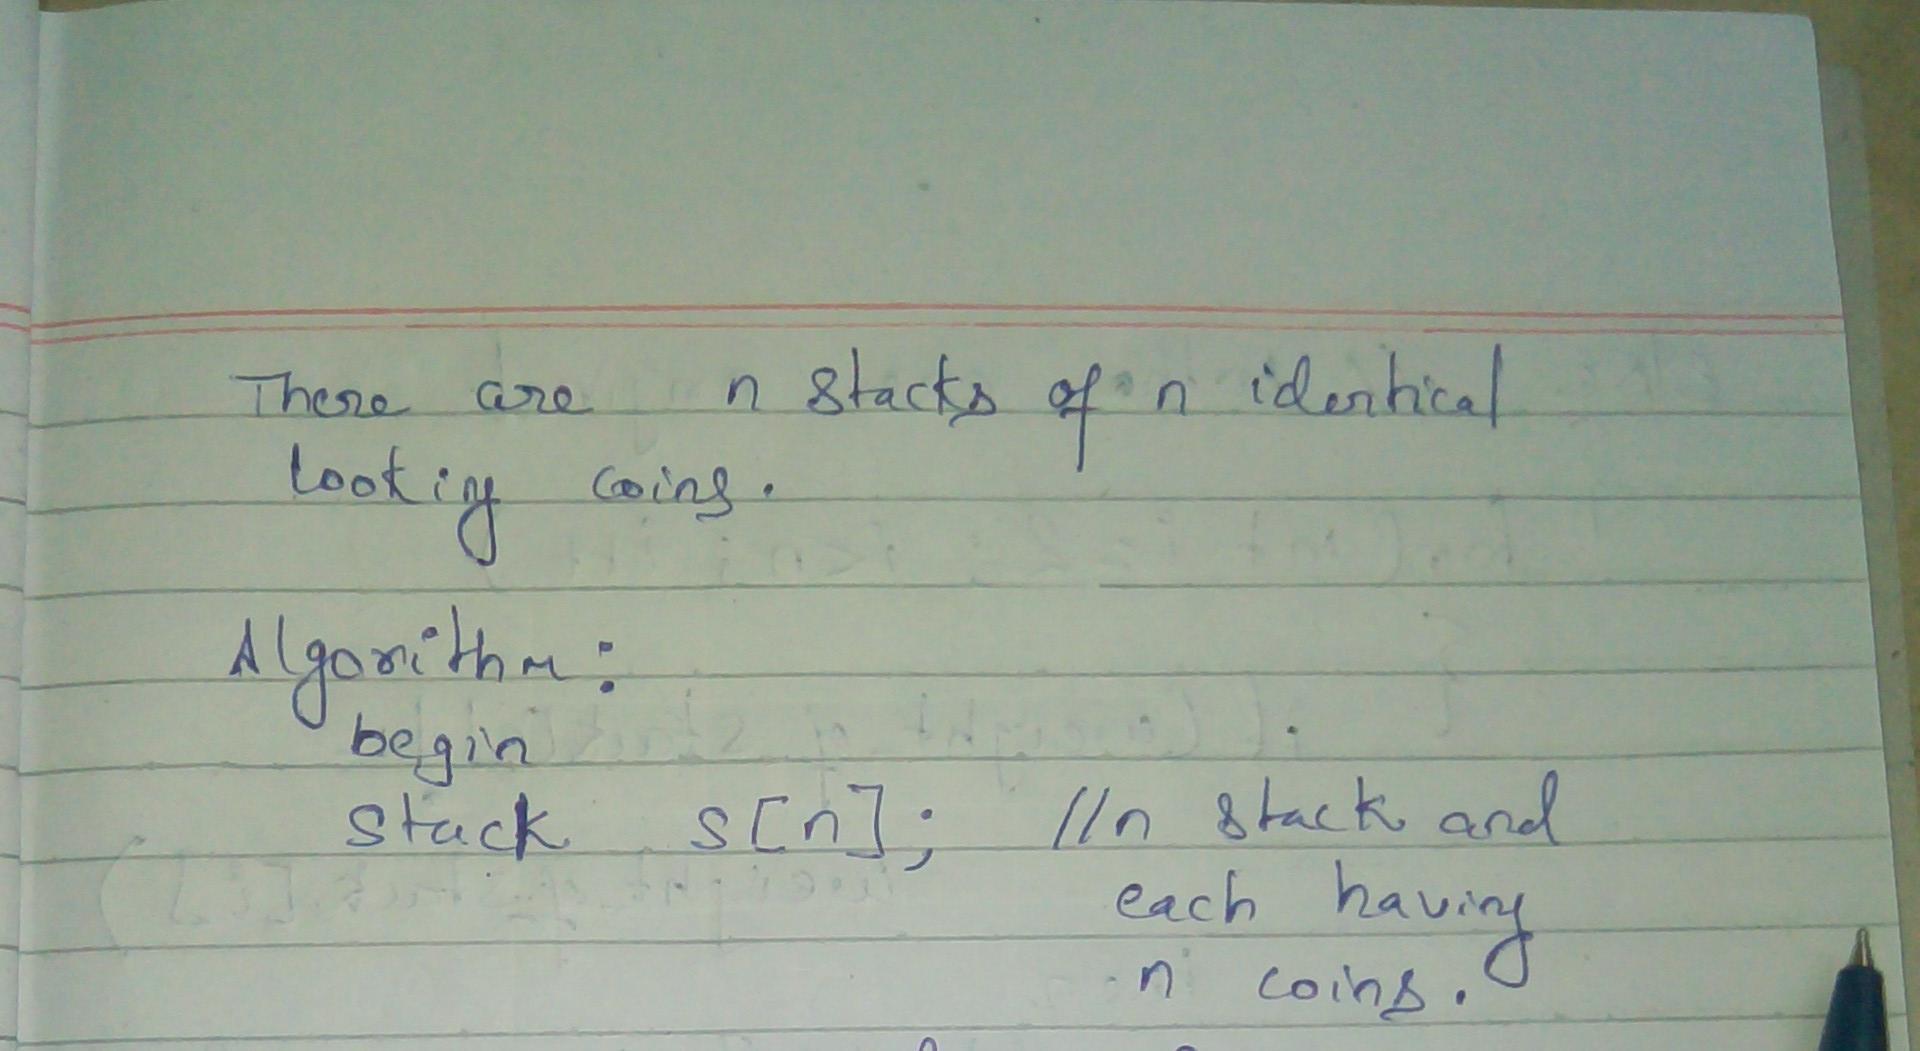 There are n stacks of n identical
looking coins.
Algorithm:
begin
stack s[n]; //n stack and
each having
n coins.